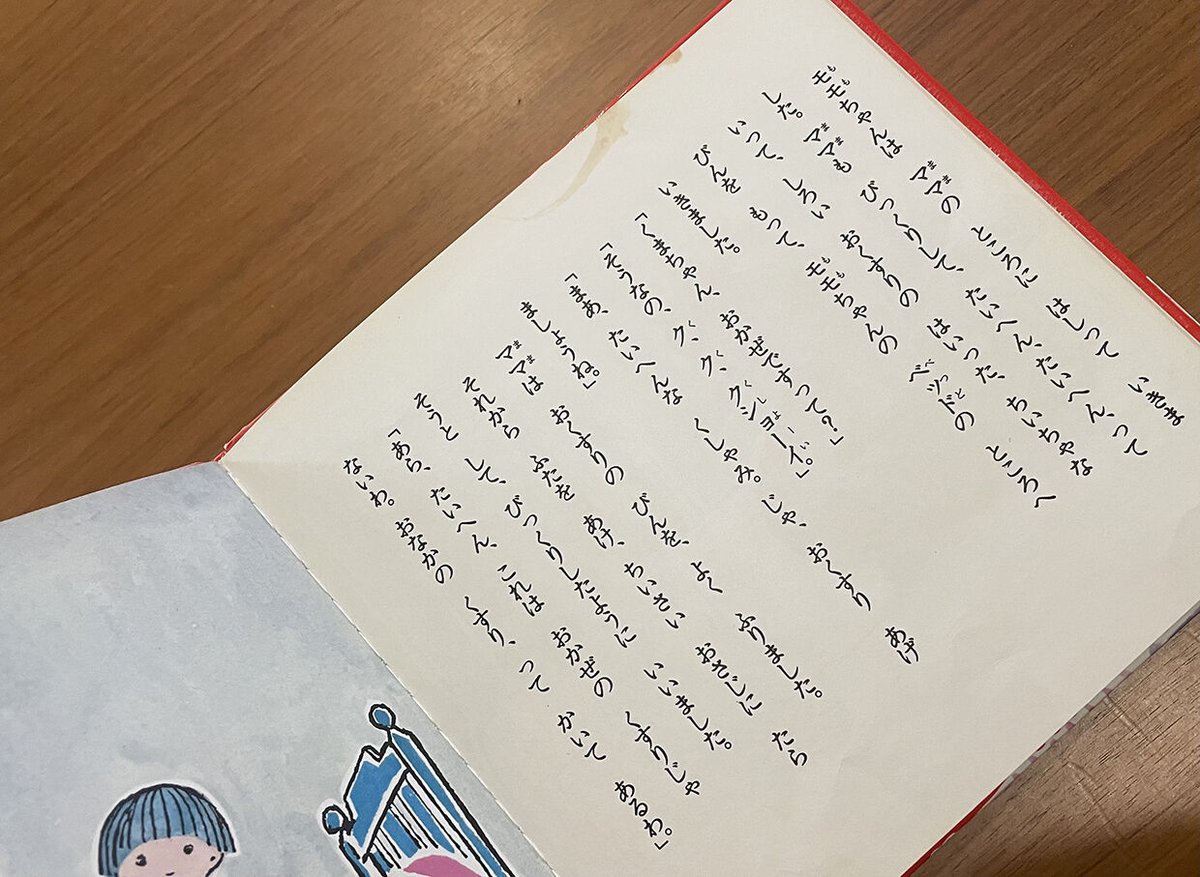 モモちゃんは ママの ところに はしって いきま
した。ママも びっくりして、たいへん、たいへん、って
いって、しろい おくすりの はいった、ちいちゃな
びんを もって、モモちゃんの ベッドの ところへ
いきました。
「くまちゃん、おかぜですって?」
「そうなの、ク、ク、クショーイ。」
「まあ、たいへんな くしゃみ。じゃ、おくすり あげ
ましょうね。」
ママは おくすりの びんを、よく ふりました。
それから ふたを あけ、ちいさい おさじに たら
そうと して、びっくりしたように いいました。
「あら、たいへん、これは おかぜの くすりじゃ
ないわ。おなかの くすり、って かいて あるわ。」